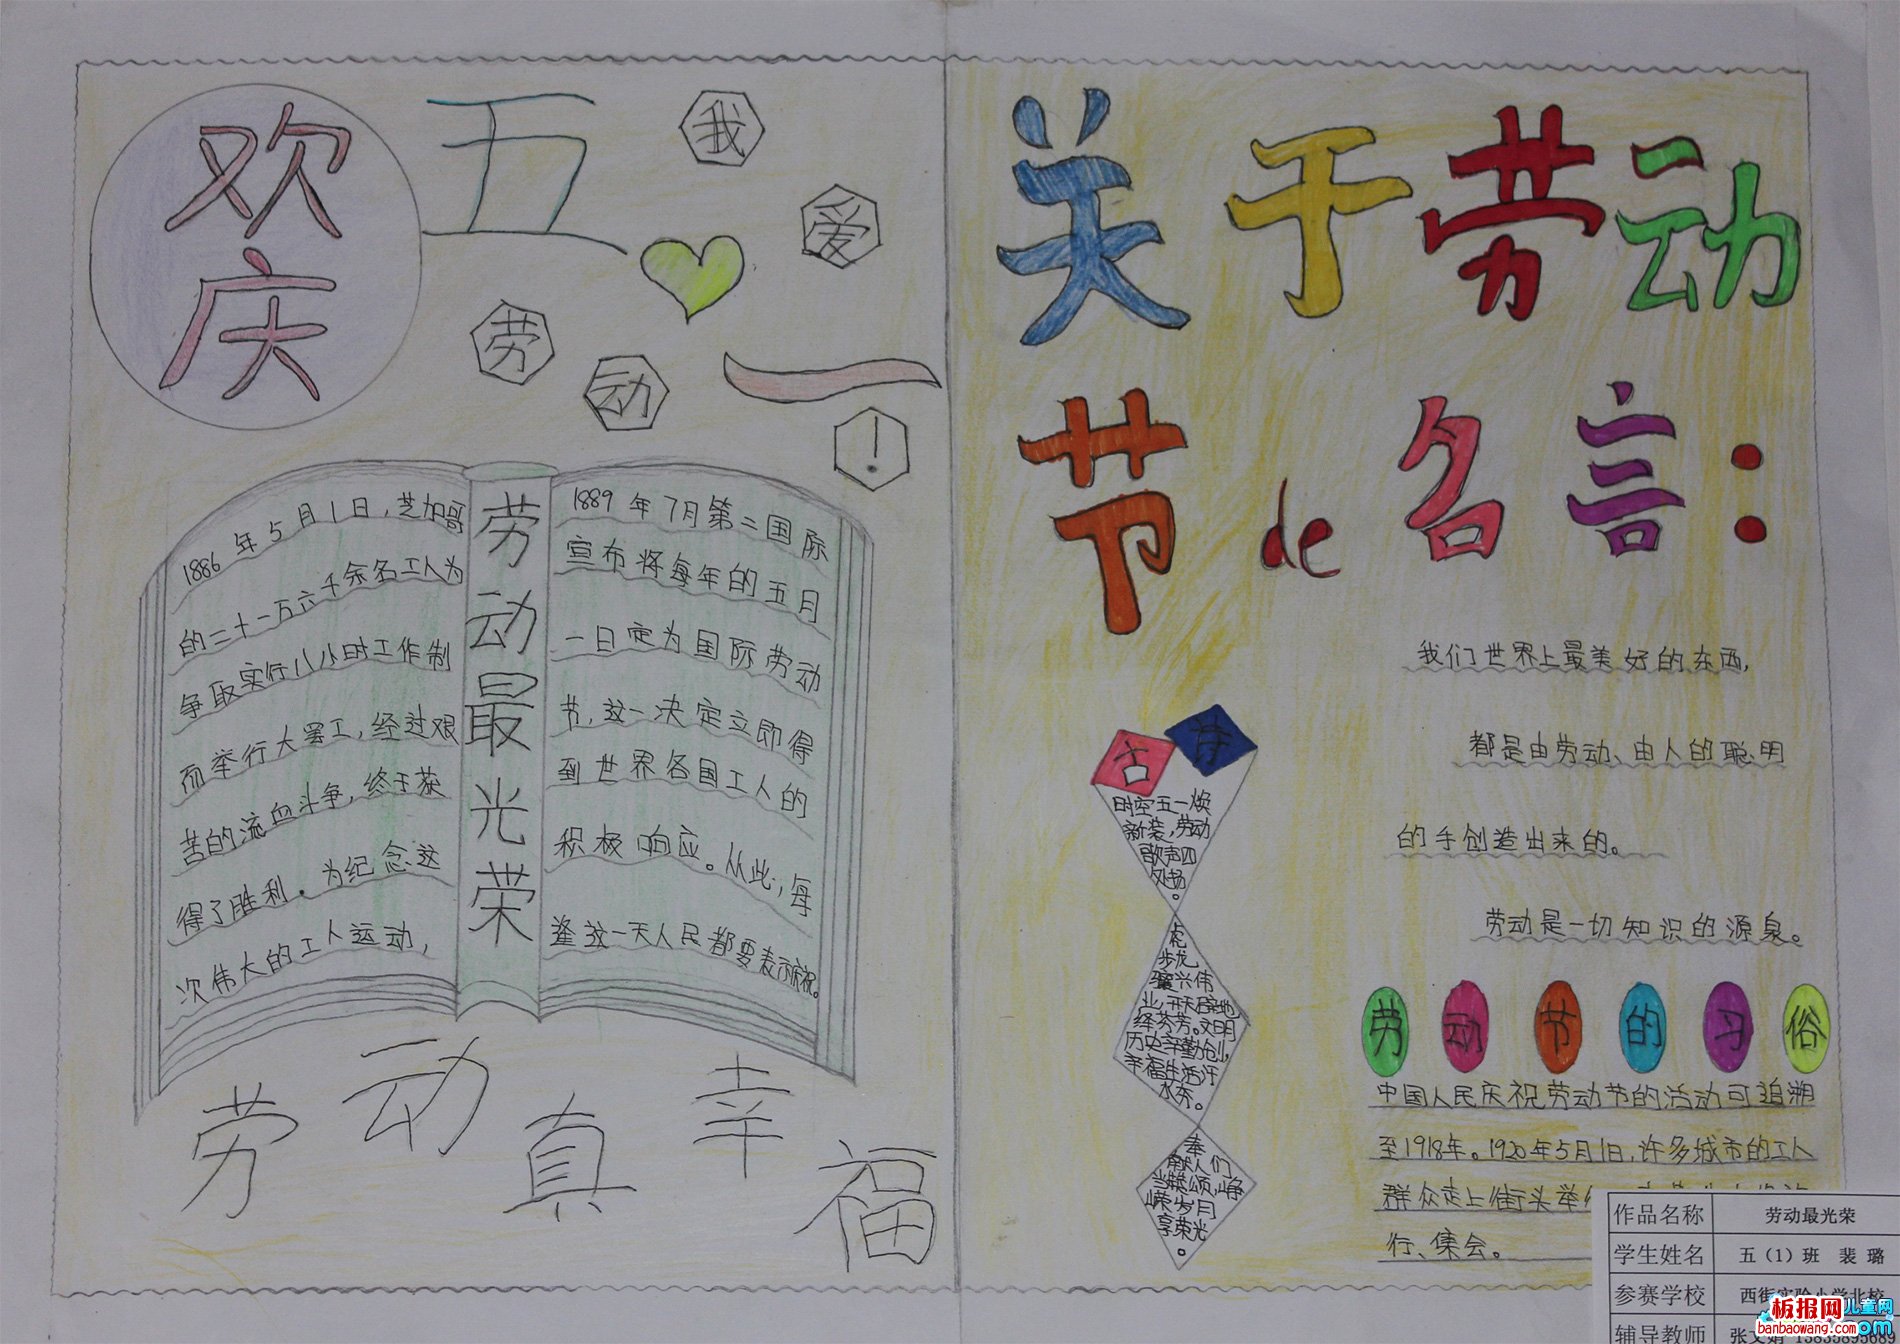 欢庆
五
一
我爱劳动！
1886年5月1日，芝加哥
的二十一万六千余名工人为
争取实行八小时工作制
而举行大罢工，经过艰
苦的流血斗争，终于获
得了胜利。为纪念这
次伟大的工人运动，
劳动最光荣
1889年7月第二国际
宣布将每年的五月
一日定为国际劳动
节，这一决定立即得
到世界各国工人的
积极响应。从此，每
逢这一天人民都要表示庆祝。
劳动真幸福
关于劳动
节de名言：
我们世界上最美好的东西，
都是由劳动、由人的聪明
的手创造出来的。
劳动是一切知识的源泉。
古诗
时空五一焕
新装，劳动
歌声四
处扬。
虎
步龙
骧兴伟
业，开天辟地
绎芬芳。文明
历史辛勤创，
幸福生活汗
水东。
奉
献人们
当赞颂，峥
嵘岁月
享荣光
。
劳动节的习俗
中国人民庆祝劳动节的活动可追溯
至1918年。1920年5月1日，许多城市的工人
群众走上街头举
行、集会。
作品名称 劳动最光荣
学生姓名 五（1）班 裴 璐
参赛学校 西街实验小学北校
辅导教师
板报网
儿童网
banbaowang.com